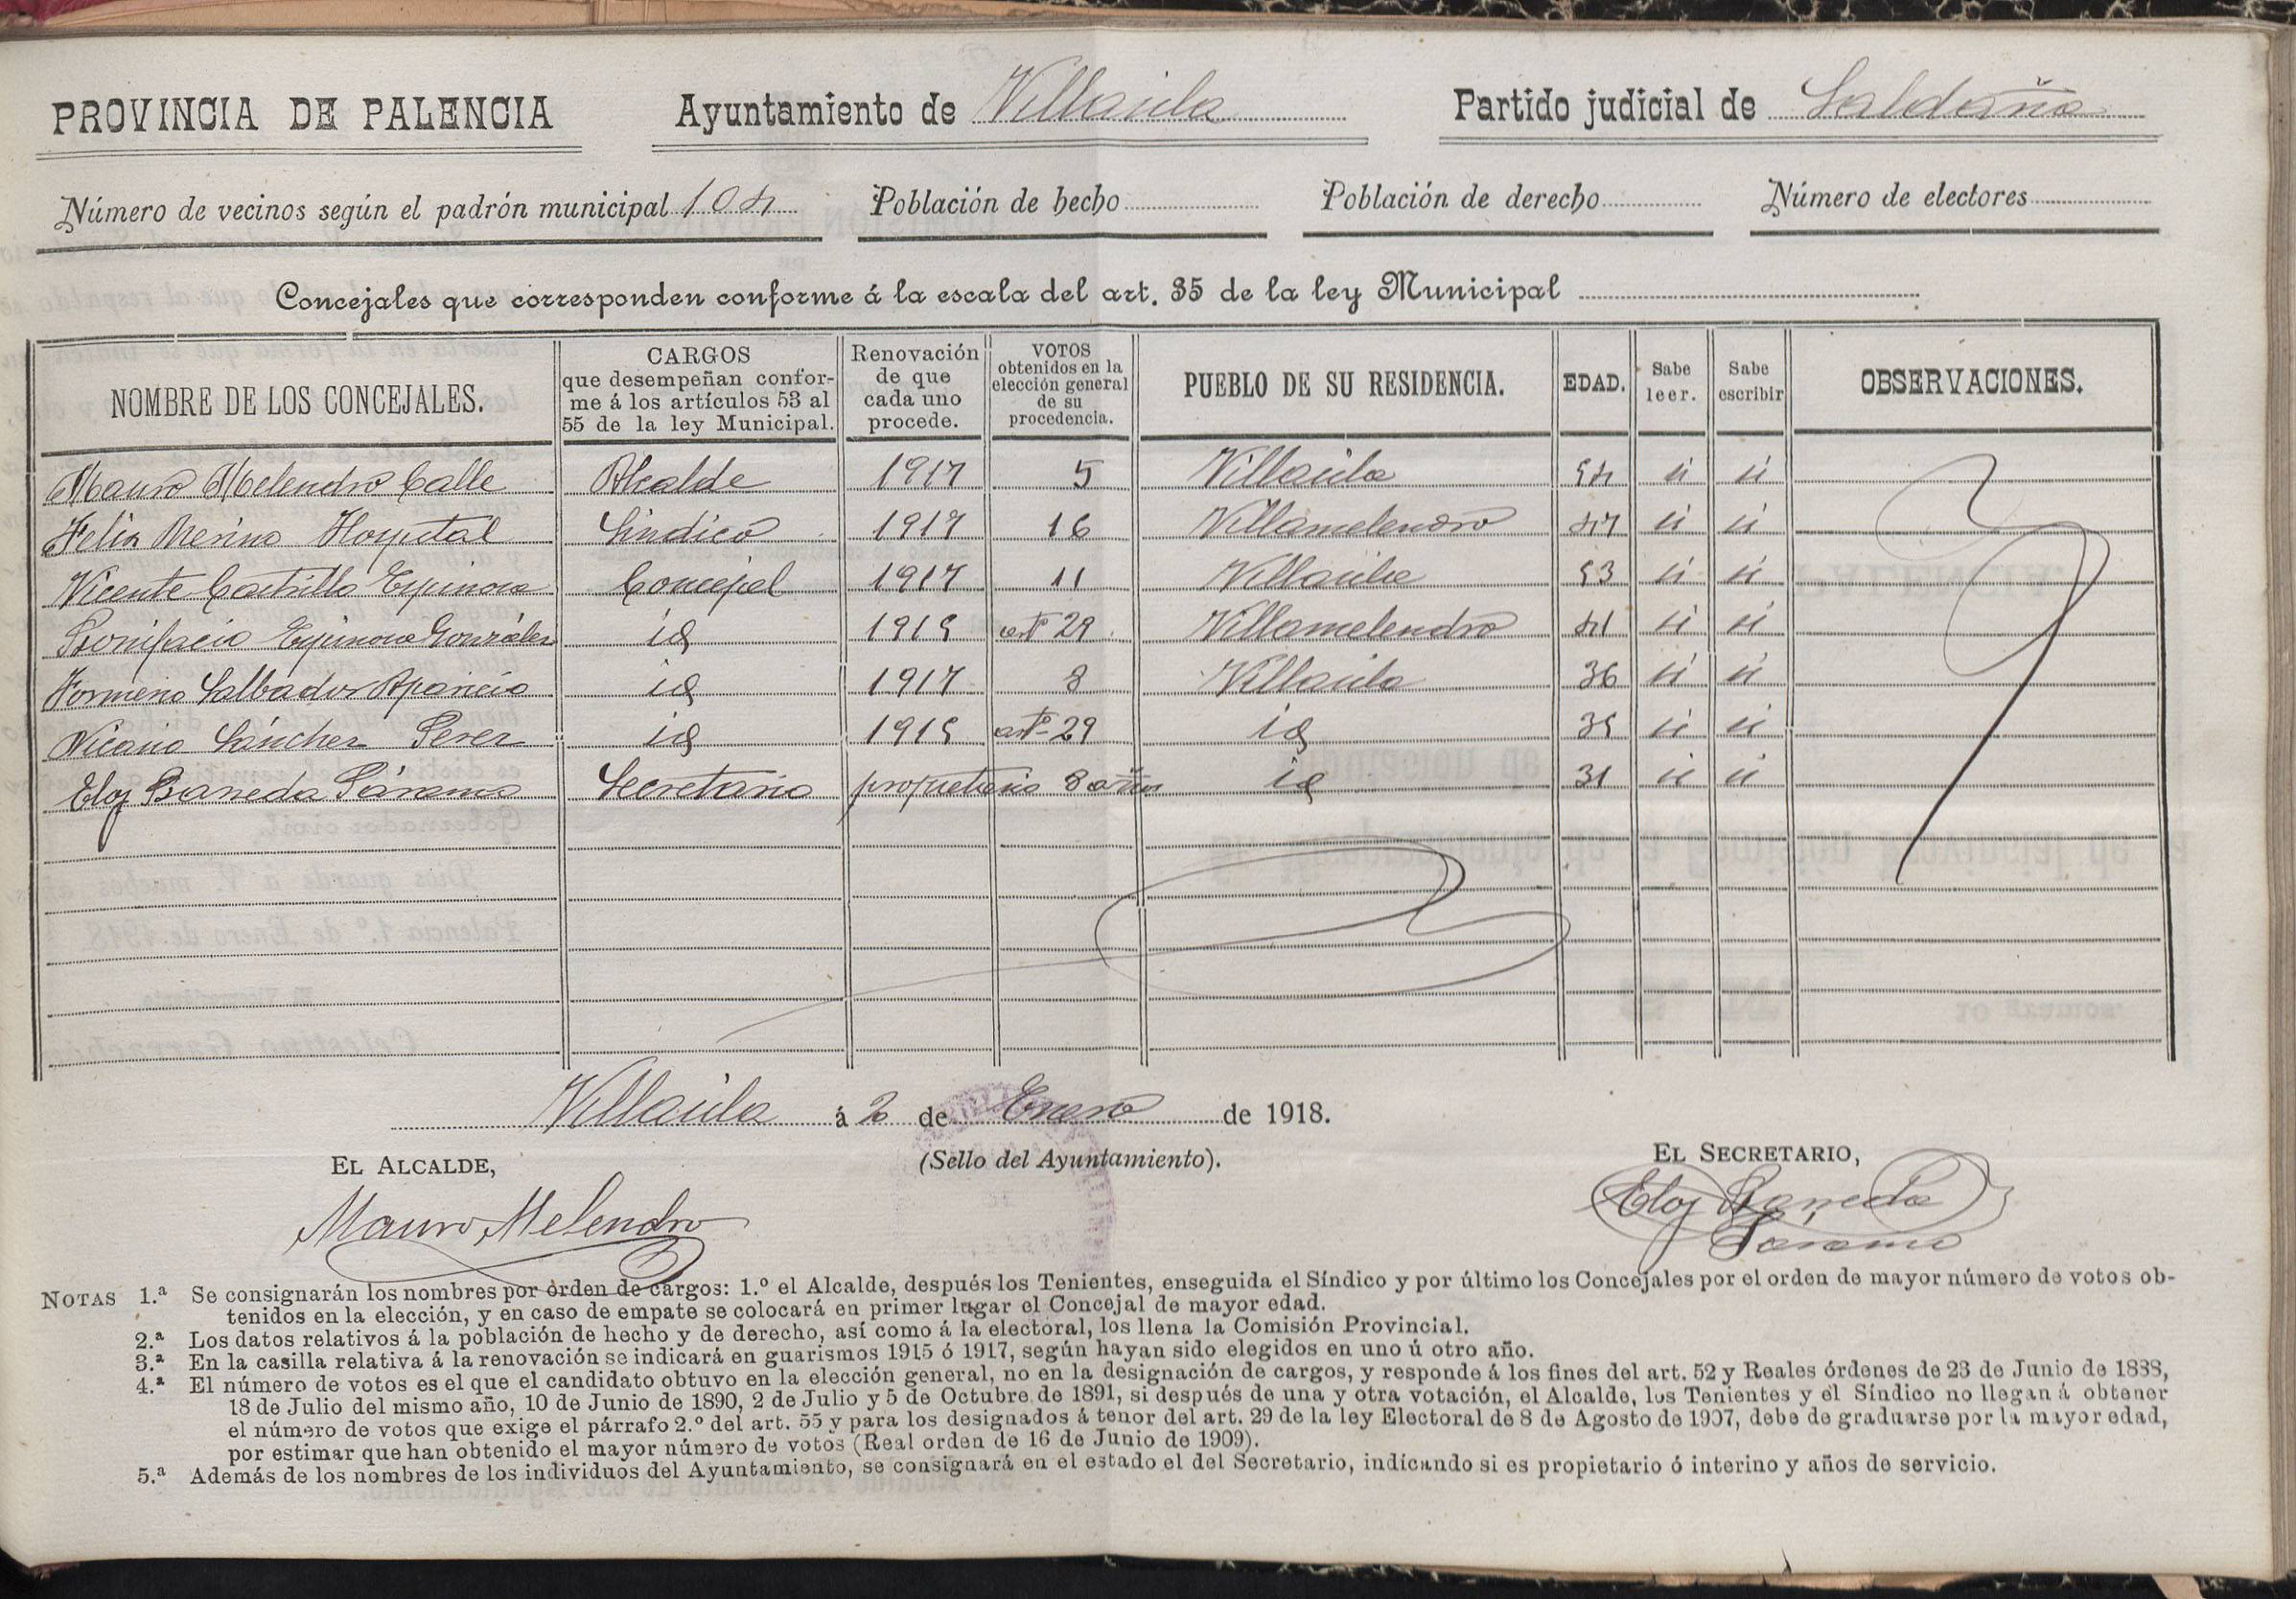 PROVINCIA DE PALENCIA Ayuntamiento de Villaúla Partido judicial de Saldaña
Número de vecinos según el padrón municipal 104 Población de hecho Población de derecho Número de electores
Concejales que corresponden conforme á la escala del art. 35 de la ley Municipal
NOMBRE DE LOS CONCEJALES. CARGOS que desempeñan conforme á los artículos 53 al 55 de la ley Municipal. Renovación de que cada uno procede. VOTOS obtenidos en la elección general de su procedencia. PUEBLO DE SU RESIDENCIA. EDAD. Sabe leer. Sabe escribir OBSERVACIONES.
Mauro Melendro Calle Alcalde 1917 5 Villaúla 54 si si
Felix Merino Hospital Sindico 1917 16 Villamelendro 47 si si
Vicente Castrillo Espinosa Concejal 1917 11 Villaúla 53 si si
Bonifacio Espinosa González id 1915 artº 29 Villamelendro 41 si si
Salbador Aparicio id 1917 8 Villaúla 36 si si
Nicasio Sánchez Perez id 1915 artº 29 id 35 si si
Eloy Baneda Páramo Secretario propietario 8 años id 31 si si
Villaúla á 2 de Enero de 1918.
EL ALCALDE, (Sello del Ayuntamiento). EL SECRETARIO,
Mauro Melendro Eloy Baneda
Páramo
NOTAS 1.ª Se consignarán los nombres por orden de cargos: 1.º el Alcalde, después los Tenientes, enseguida el Síndico y por último los Concejales por el orden de mayor número de votos ob-
tenidos en la elección, y en caso de empate se colocará en primer lugar el Concejal de mayor edad.
2.ª Los datos relativos á la población de hecho y de derecho, así como á la electoral, los llena la Comisión Provincial.
3.ª En la casilla relativa á la renovación se indicará en guarismos 1915 ó 1917, según hayan sido elegidos en uno ú otro año.
4.ª El número de votos es el que el candidato obtuvo en la elección general, no en la designación de cargos, y responde á los fines del art. 52 y Reales órdenes de 23 de Junio de 1888,
18 de Julio del mismo año, 10 de Junio de 1890, 2 de Julio y 5 de Octubre de 1891, si después de una y otra votación, el Alcalde, los Tenientes y el Síndico no llegan á obtener
el número de votos que exige el párrafo 2.º del art. 55 y para los designados á tenor del art. 29 de la ley Electoral de 8 de Agosto de 1907, debe de graduarse por la mayor edad,
por estimar que han obtenido el mayor número de votos (Real orden de 16 de Junio de 1909).
5.ª Además de los nombres de los individuos del Ayuntamiento, se consignará en el estado el del Secretario, indicando si es propietario ó interino y años de servicio.